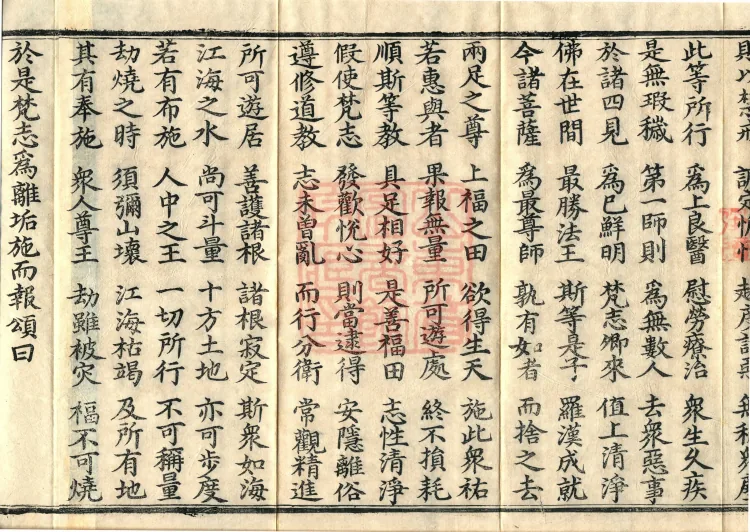 此等所行 為上良醫 慰勞療治 衆生久疾
是無瑕穢 第一師則 為無數人 去衆惡事
於諸四見 為已鮮明 梵志卿來 值上清淨
佛在世間 最勝法王 斯等是子 羅漢成就
今諸菩薩 為最尊師 孰有如者 而捨之去
兩足之尊 上福之田 欲得生天 施此衆祐
若惠與者 果報無量 所可遊處 終不損耗
順斯等教 具足相好 是善福田 志性清淨
假使梵志 發歡悅心 則當逮得 安隱離俗
遵修道教 志未曽亂 而行分衛 常觀精進
所可遊居 善護諸根 諸根寂定 斯衆如海
江海之水 尚可斗量 十方土地 亦可步度
若有布施 人中之王 一切所行 不可稱量
劫燒之時 須彌山壞 江海枯竭 及所有地
其有奉施 衆人尊王 劫雖被灾 福不可燒
於是梵志為離垢施而報頌曰